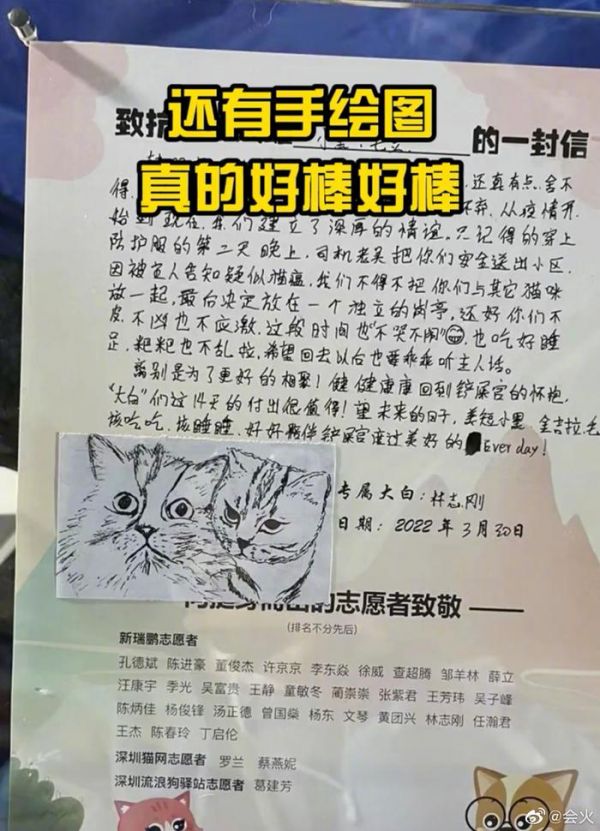 还有手绘图
真的好棒好棒
致抗
的一封信
得，还真有点舍不
弃，从疫情开
始到现在，我们建立了深厚的情谊。只记得的穿上
防护服的第二天晚上，司机老吴把你们安全送出小区，
因被主人告知疑似猫瘟，我们不得不把你们与其它猫咪
放一起，最后决定放在一个独立的岗亭，还好你们不
不凶也不应激，这段时间也"不哭不闹"😁，也吃好睡
足，粑粑也不乱拉，希望回去以后也要乖乖听主人话。
离别是为了更好的相聚！健健康康回到铲屎官的怀抱，
"大白"们这14天的付出很值得！望未来的日子，美短小墨、金吉拉毛
该吃吃，该睡睡，好好陪伴铲屎官度过美好的Ever day！
专属大白：林志刚
日期：2022年3月30日
向挺身而出的志愿者致敬
(排名不分先后)
新瑞鹏志愿者
孔德斌 陈进豪 董俊杰 许京京 李东焱 徐威 查超腾 邹羊林 薛立
汪康宇 季光 吴富贵 王静 童敏冬 蔺崇崇 张紫君 王芳玮 吴子峰
陈炳佳 杨俊锋 汤正德 曾国燊 杨东 文琴 黄团兴 林志刚 任瀚君
王杰 陈春玲 丁启伦
深圳猫网志愿者 罗兰 蔡燕妮
深圳流浪狗驿站志愿者 葛建芳
@会火